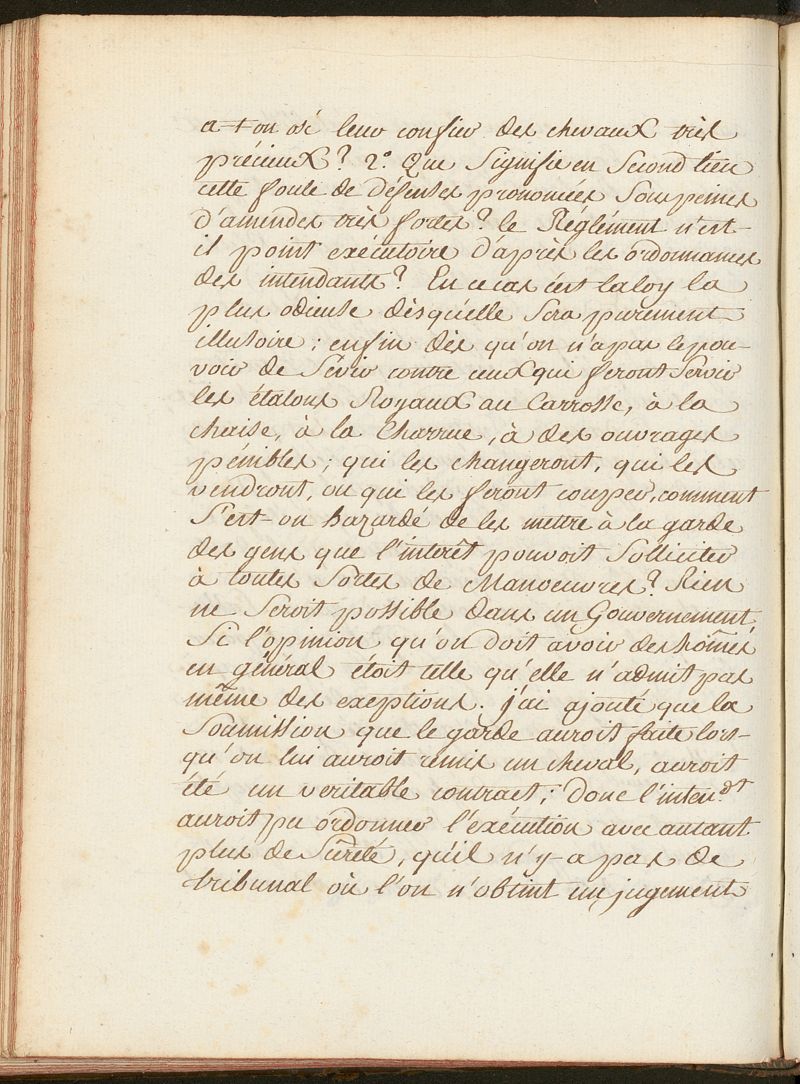 a-t-on osé leur confier des chevaux très
précieux? 2.° Que Signifie en Second lieu
cette foule de défenses prononcées Sous peines
d'amendes très fortes? le Réglément n'est-
il point exécutoire d'après les ordonnances
des intendants? En ce cas c'est la loy la
plus odieuse dès qu'elle Sera purement
illusoire; enfin dès qu'on n'a pas le pou-
voir de Sévir contre ceux qui feront Servir
les étalons Royaux au Carrosse, à la
chaise, à la Charrue, à des ouvrages
pénibles; qui les changeront, qui les
vendront, ou qui les feront couper, comment
S'est-on hazardé de les mettre à la garde
des gens que l'interêt pouvoit Solliciter
à toutes Sortes de Manoeuvres? Rien
ne Seroit possible dans un Gouvernement,
Si l'opinion qu'on doit avoir des hom̃es
en général étoit telle qu'elle n'admit pas
même des exeptions. j'ai ajouté que la
Soumission que le garde auroit faite lors-
qu'on lui auroit remis un cheval, auroit
été un veritable contract; donc l'inten.dt
auroit pu ordonner l'exécution avec autant
plus de Sûreté, qu'il n'y-a pas de
tribunal où l'on n'obtint un jugement